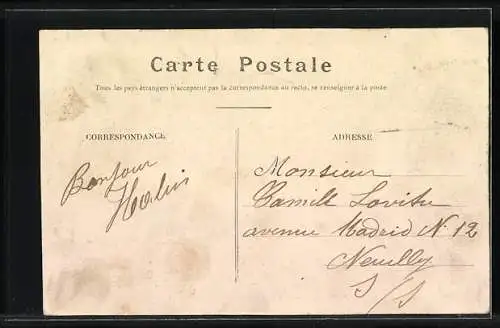 Carte Postale
Tous les pays étrangers n'acceptent pas la correspondance au recto, se renseigner à la poste
CORRESPONDANCE
Bonjour
ADRESSE
Monsieur
Camille
avenue Madrid N. 12
Neuilly
S/S